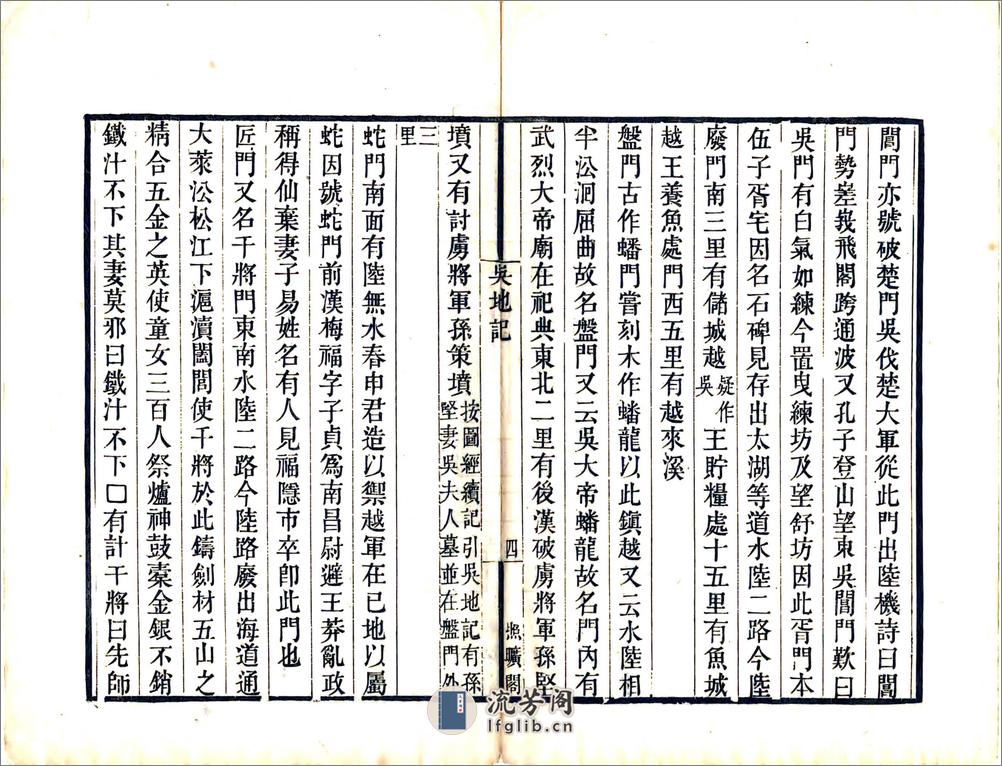 閶門亦號破楚門吳伐楚大軍從此門出陸機詩曰閶
門勢嵳峩飛閣跨通波又孔子登山望東吳閶門歎曰
吳門有白氣如練今置曳練坊及望舒坊因此胥門本
伍子胥宅因名石碑見存出太湖等道水陸二路今陸
廢門南三里有儲城越疑作吳王貯糧處十五里有魚城
越王養魚處門西五里有越來溪
盤門古作蟠門嘗刻木作蟠龍以此鎮越又云水陸相
半㳂洄屈曲故名盤門又云吳大帝蟠龍故名門內有
武烈大帝廟在祀典東北二里有後漢破虜將軍孫堅
吳地記
四
照曠閣
墳又有討虜將軍孫策墳按圖經續記引吳地記有孫
堅妻吳夫人墓並在盤門外
三
里
蛇門南面有陸無水春申君造以禦越軍在巳地以屬
蛇因號蛇門前漢梅福字子貞爲南昌尉避王莽亂政
稱得仙棄妻子易姓名有人見福隱市卒卽此門也
匠門又名干將門東南水陸二路今陸路廢出海道通
大萊㳂松江下滬瀆闔閭使干將於此鑄劍材五山之
精合五金之英使童女三百人祭爐神鼓橐金銀不銷
鐵汁不下其妻莫邪曰鐵汁不下囗有計干將曰先師
流芳阁
lfglib.cn